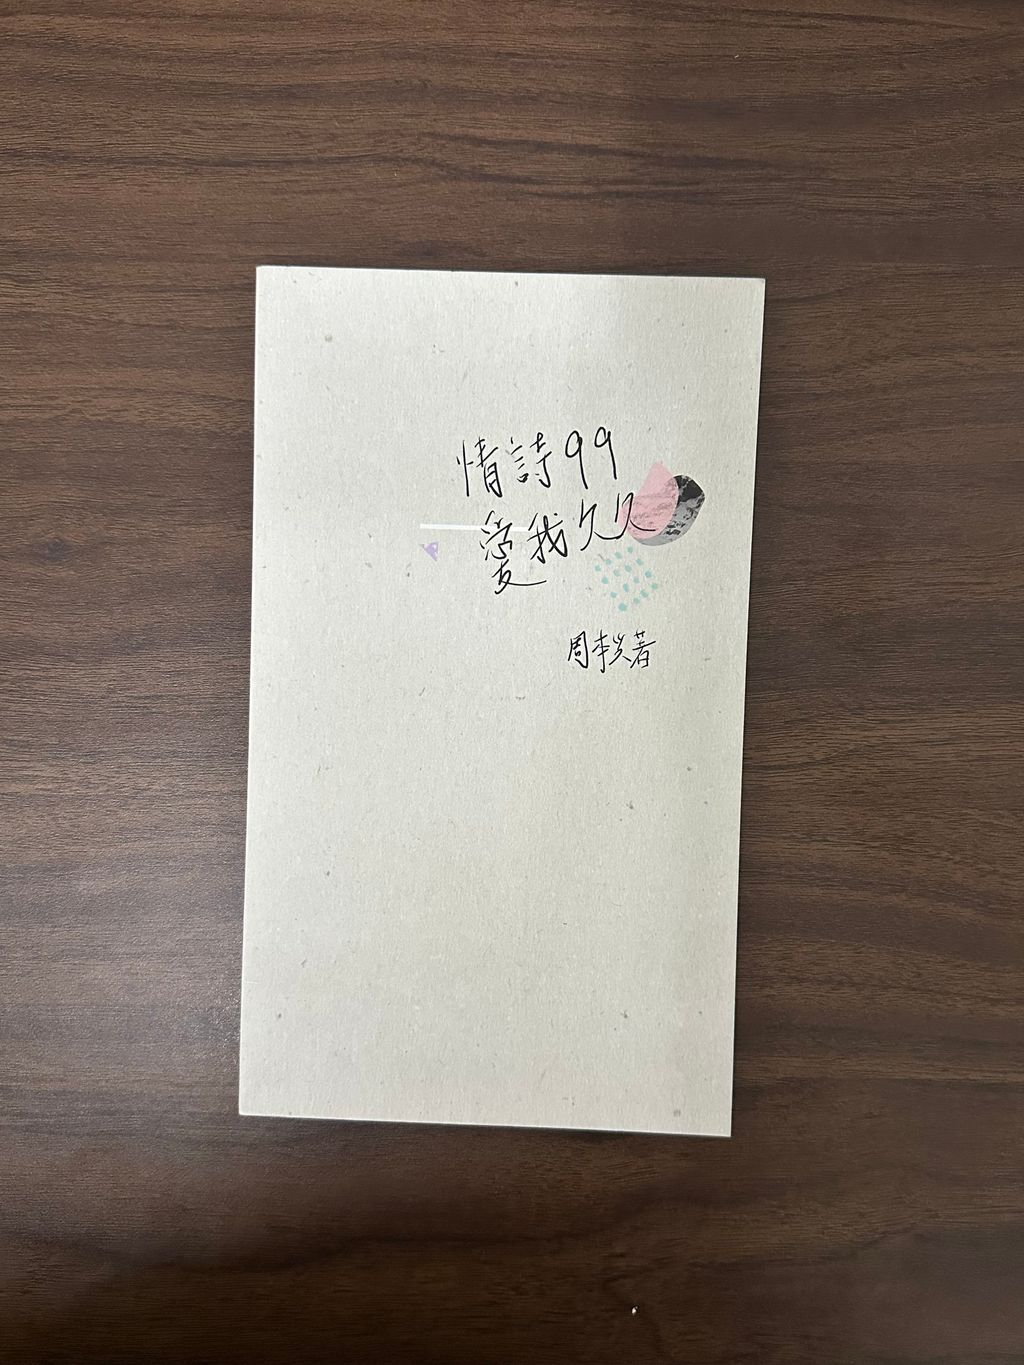 情詩99
愛我久久
周李災著